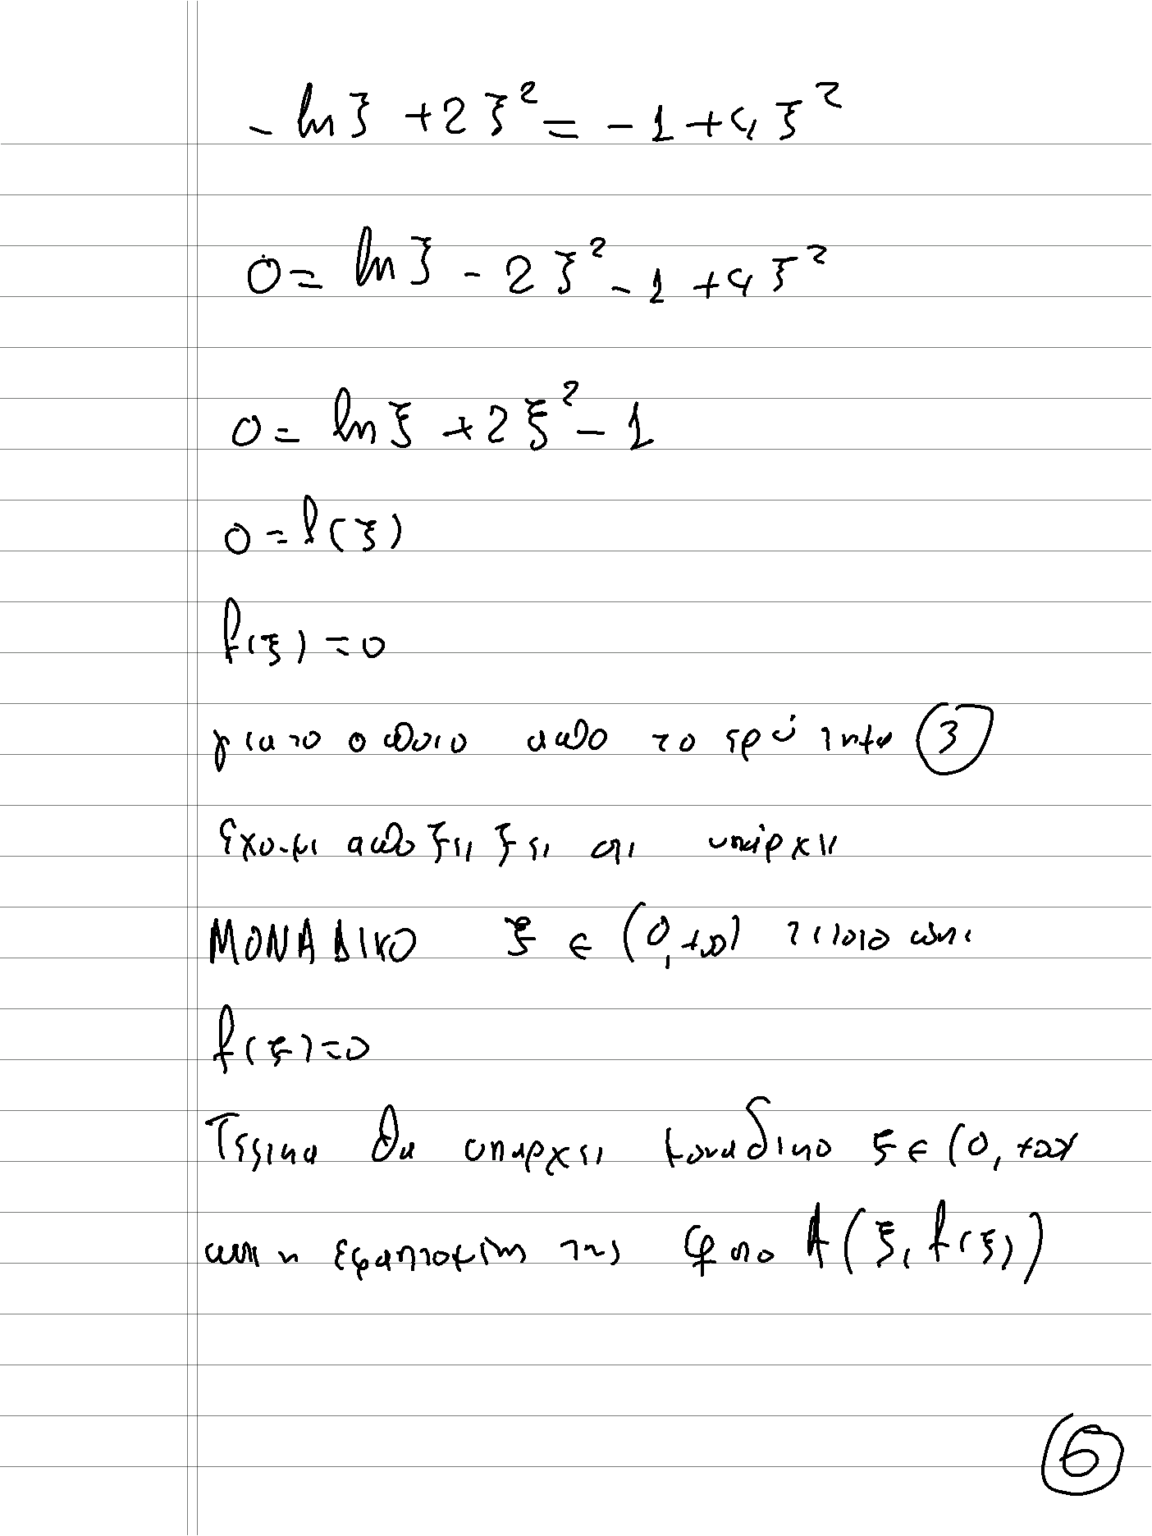 - ln ξ + 2 ξ² = - 1 + 4 ξ²
0 = ln ξ - 2 ξ² - 1 + 4 ξ²
0 = ln ξ + 2 ξ² - 1
0 = f(ξ)
f(ξ) = 0
για το οποιο απο το ερώτημα ③
εχουμε αποδειξει οτι υπάρχει
ΜΟΝΑΔΙΚΟ ξ ∈ (0, +∞) τετοιο ωστε
f(ξ) = 0
Τελικα θα υπαρχει μοναδικο ξ ∈ (0, +∞)
ωστε η εφαπτομένη της φ στο A(ξ, f(ξ))
⑥